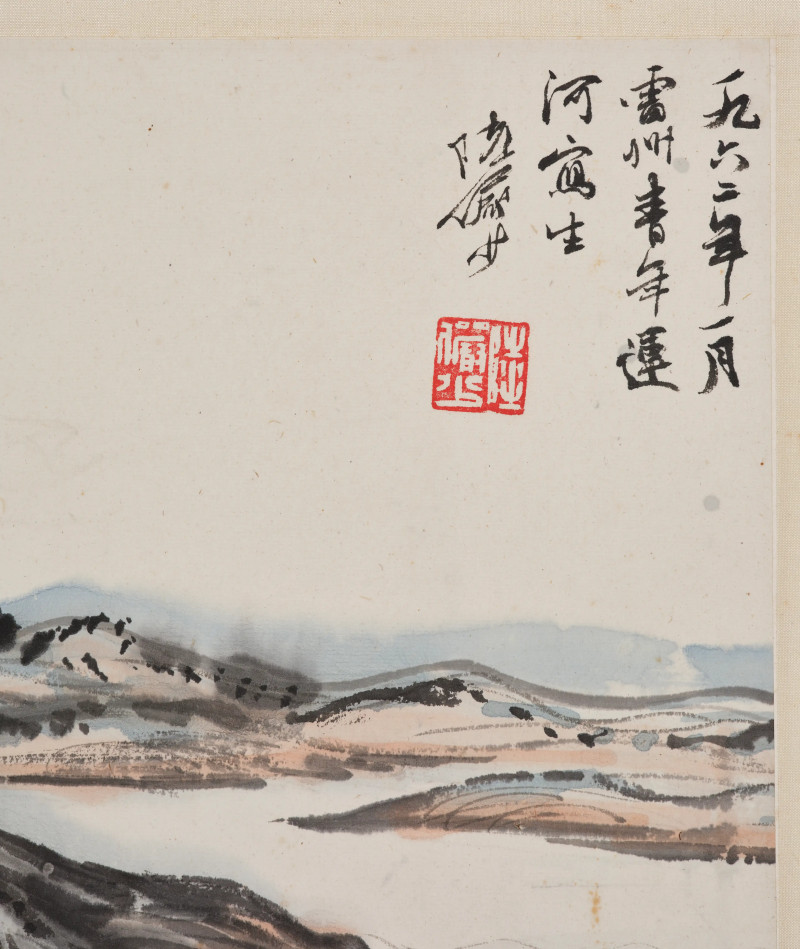 一九六二年一月
雷州青年運
河寫生
陸儼少
陸儼少